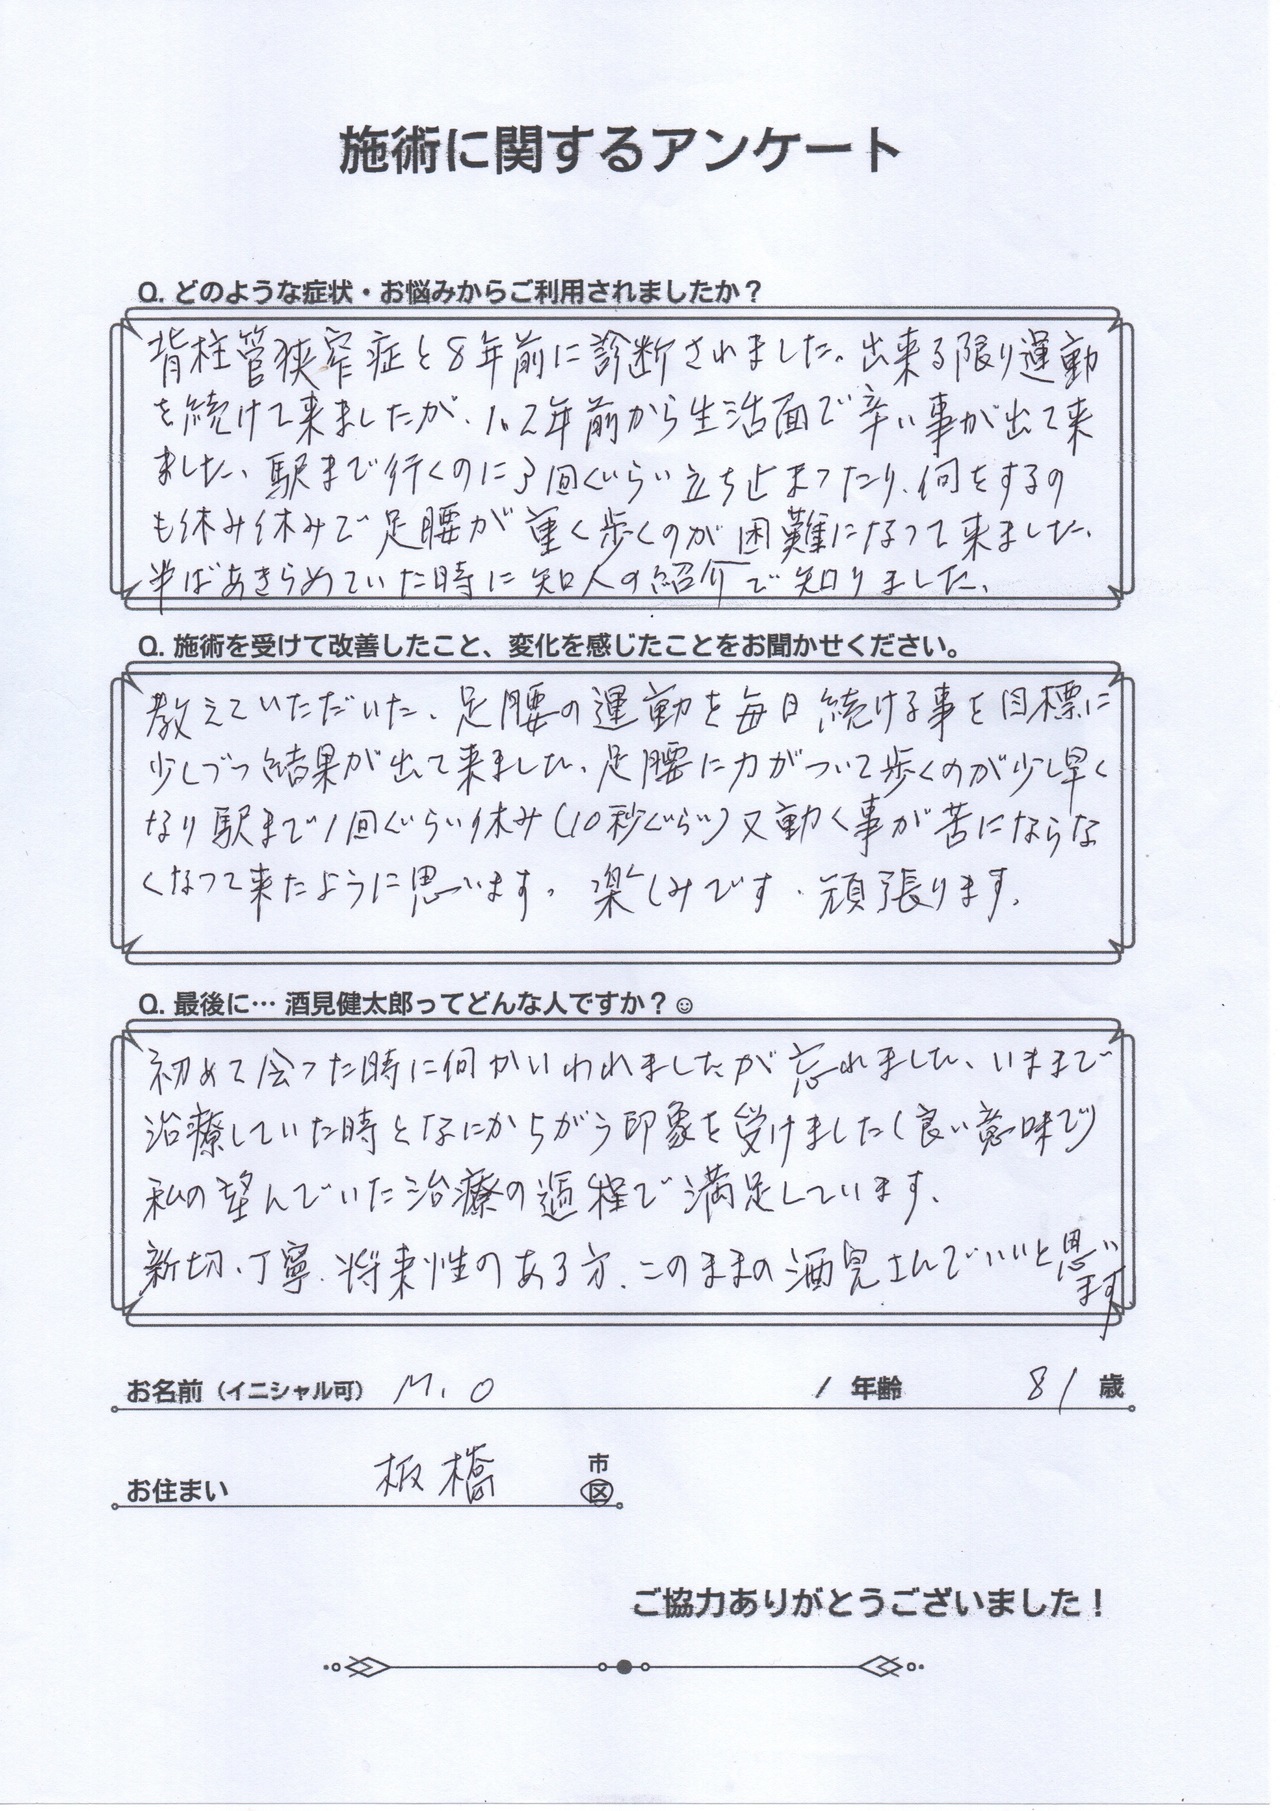 施術に関するアンケート
Q. どのような症状・お悩みからご利用されましたか？
背柱管狭窄症と8年前に診断されました。出来る限り運動
を続けて来ましたが、1.2年前から生活面で辛い事が出て来
ました、駅まで行くのに3回ぐらい立ち止まったり、何をするの
も休み休みで足腰が重く歩くのが困難になって来ました、
半ばあきらめていた時に知人の紹介で知りました、
Q. 施術を受けて改善したこと、変化を感じたことをお聞かせください。
教えていただいた、足腰の運動を毎日続ける事を目標に
少しづつ結果が出て来ました、足腰に力がついて歩くのが少し早く
なり駅まで1回ぐらい休み(10秒ぐらい)又動く事が苦にならな
くなって来たように思います。楽しみです、頑張ります。
Q. 最後に… 酒見健太郎ってどんな人ですか？☺
初めて会った時に何かいわれましたが忘れました、いままで
治療していた時となにかちがう印象を受けました(良い意味で)
私の望んでいた治療の過程で満足しています、
新切、丁寧、将来性のある方、このままの酒見さんでいいと思い
ます
お名前（イニシャル可） M.O / 年齢 81 歳
市
お住まい 板橋 区
ご協力ありがとうございました！